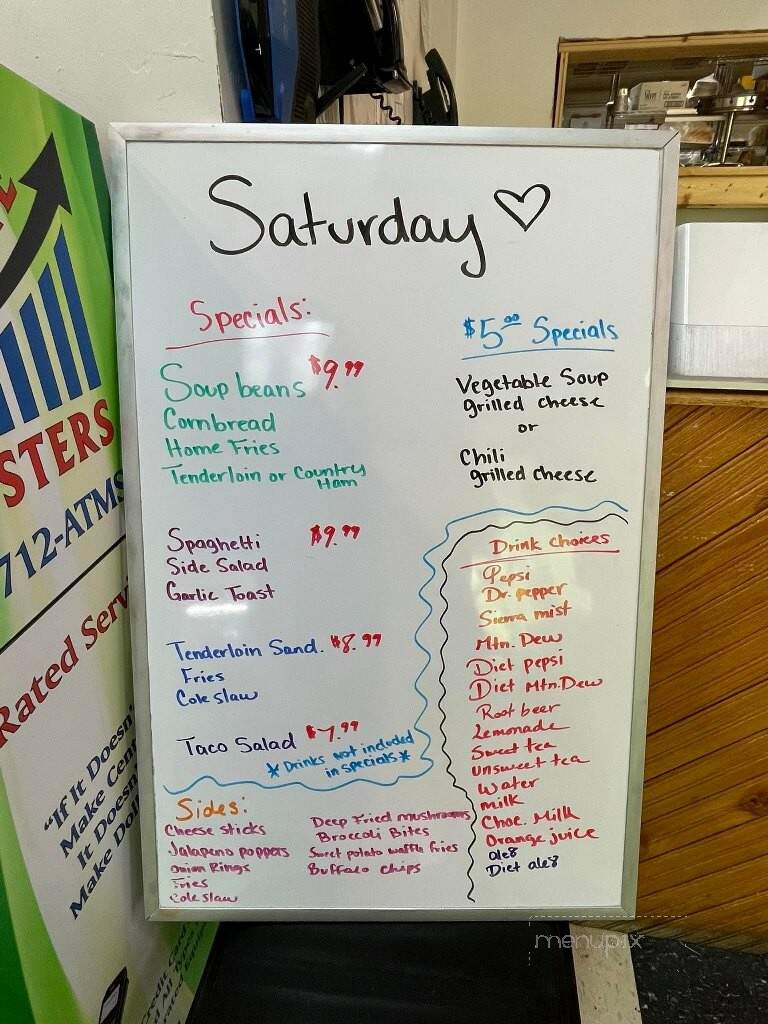 Saturday ♡
Specials:
Soup beans $9.99
Cornbread
Home Fries
Tenderloin or Country
Ham
Spaghetti $9.99
Side Salad
Garlic Toast
Tenderloin Sand. $8.99
Fries
Cole slaw
Taco Salad $7.99
*Drinks not included
in specials*
Sides:
Cheese sticks
Jalapeno poppers
onion Rings
Fries
Cole slaw
Deep Fried mushrooms
Broccoli Bites
Sweet potato waffle fries
Buffalo chips
$5.00 Specials
Vegetable Soup
grilled cheese
or
Chili
grilled cheese
Drink choices
Pepsi
Dr. pepper
Sierra mist
Mtn. Dew
Diet pepsi
Diet Mtn. Dew
Root beer
Lemonade
Sweet tea
unsweet tea
Water
milk
Choc. Milk
Orange juice
ale8
Diet ale8
STERS
712-ATMS
Rated Serv
"If It Doesn'
Make Cen
It Doesn'
Make Dol
menupix